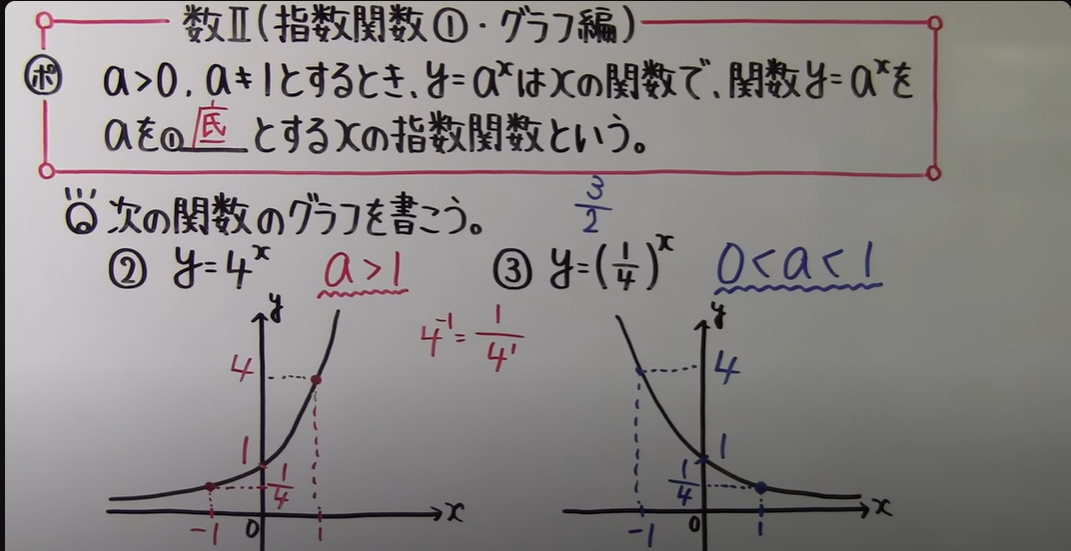 数Ⅱ(指数関数①・グラフ編)
ポ a>0, a≠1とするとき、y=aˣはxの関数で、関数y=aˣを
aを①底とするxの指数関数という。
次の関数のグラフを書こう。
3/2
② y=4ˣ a>1
③ y=(1/4)ˣ 0<a<1
4⁻¹=1/4¹
y
4
1
1/4
-1 0 1 x
y
4
1
1/4
-1 0 1 x